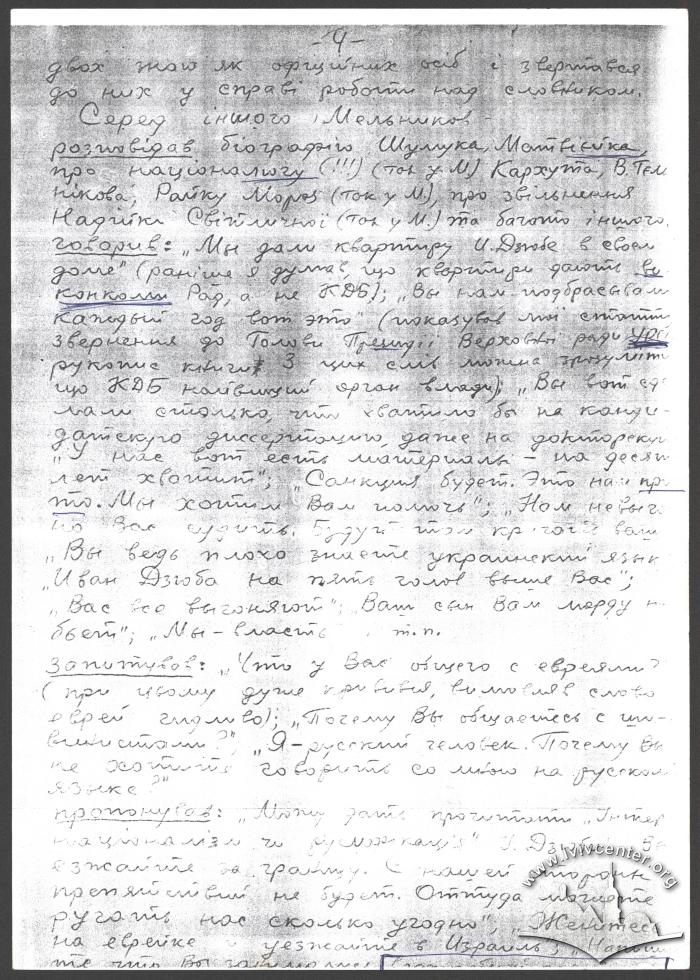 - 4 -
двох жою як офіційних осіб і звертався
до них у справі роботи над словником.
Серед іншого Мельников
розповідав біографію Шумука, Матвіійка,
про націоналюгу (!!!) (ток у М) Кархута, В. Тем
нікова, Райку Мороз (ток у М), про звільнення
Надійки Світличної (ток у М.) та багато іншого.
говорив: „Мы дали квартиру И. Дзюбе в своем
доме" (раніше я думав, що квартири дають ви
конкоми Рад, а не КДБ); „Вы нам подбрасывали
каждый год вот это" (показував мої статті
звернення до Голови Президії Верховної ради УРСР
рукопис книги З цих слів можна зрозуміти
що КДБ найвищий орган влади); „Вы вот сде
лали столько, что хватило бы на канди-
датскую диссертацию, даже на докторскую
„У нас вот есть материалы – на десять
лет хватит"; „Санкция будет. Это нам пр
то. Мы хотим Вам помочь"; „Нам невыго
но Вас судить. Будут там кричать ваши
„Вы ведь плохо знаете украинский язык
„Иван Дзюба на пять голов выше Вас";
„Вас все выгоняют"; Ваш сын Вам морду н
бьет"; „Мы – власть т.п.
запитував: „Что у Вас общего с евреями?
(при цьому дуже кривився, вимовляв слово
еврей гидливо); „Почему Вы общаетесь с ши-
винистами?"; „Я – русский человек. Почему Вы
не хотите говорить со мною на русском
языке?"
пропонував: „Могу дать прочитать „Інтер
націоналізм чи русифікація" І. Дзюби
езжайте за границу. С нашей стороны
препятствий не будет. Оттуда можете
ругать нас сколько угодно"; „Женитесь
на еврейке и уезжайте в Израиль"; „Напиши
те что Вы
www.lvivcenter.org